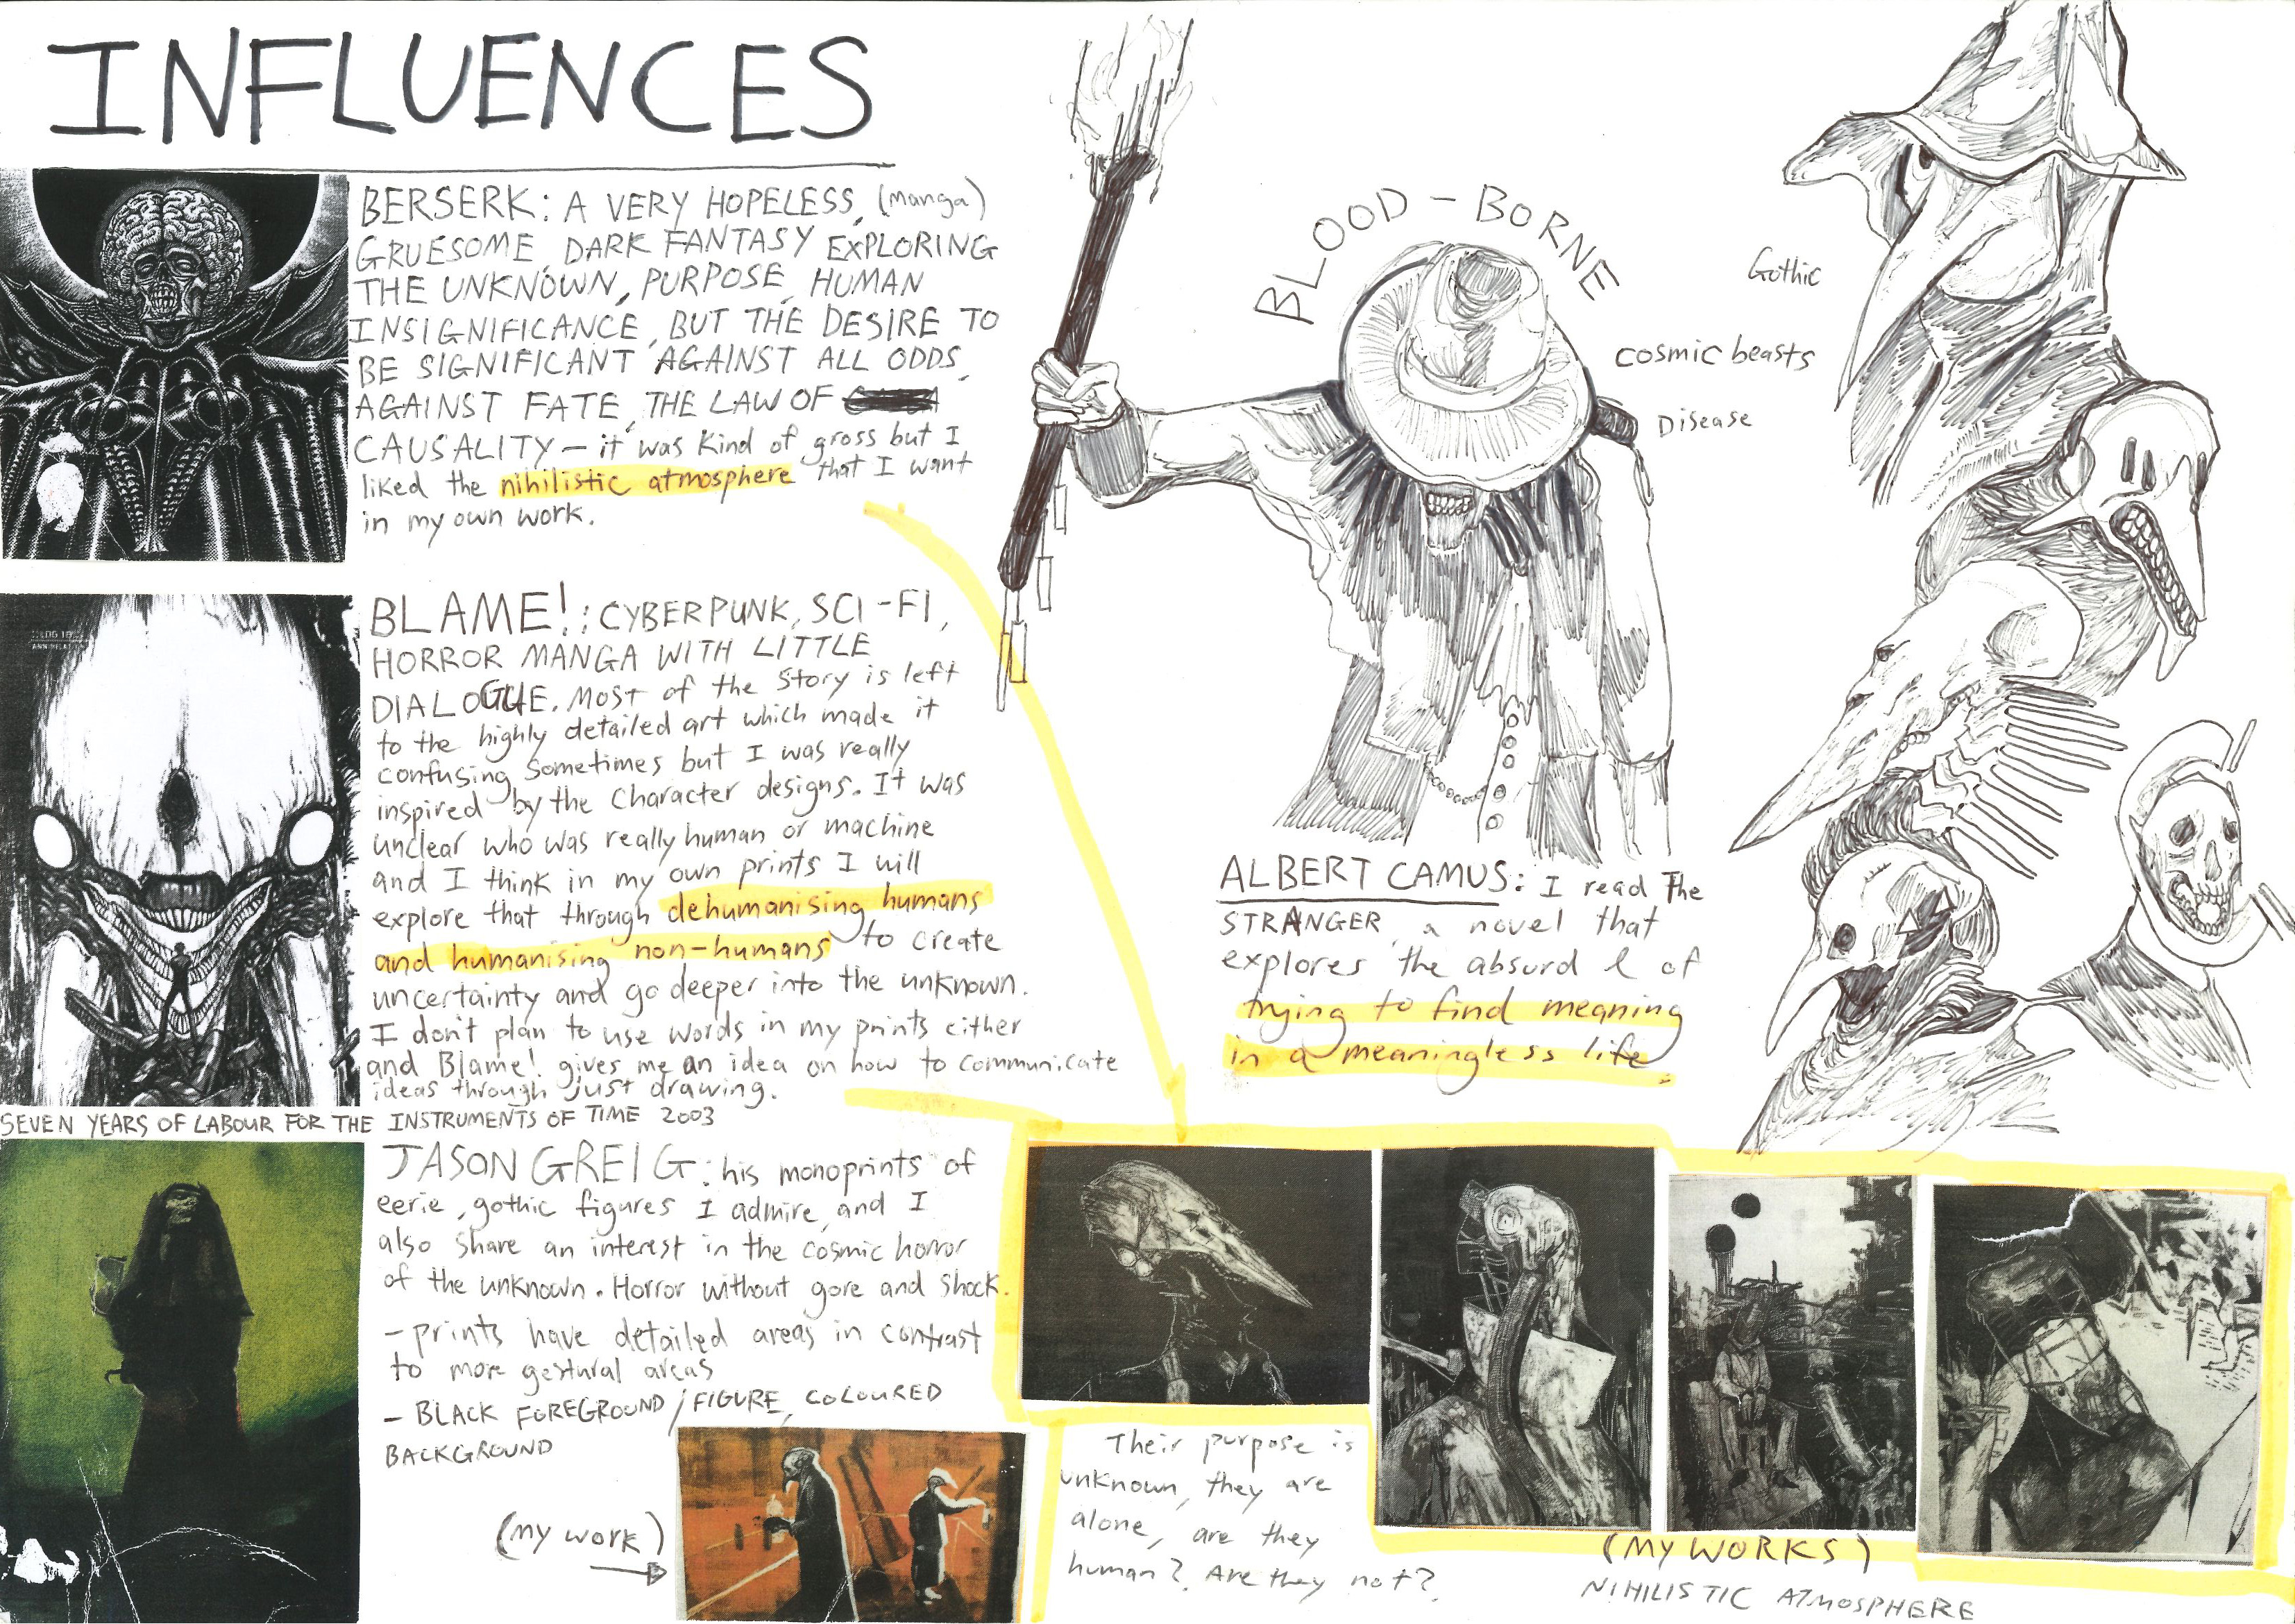 INFLUENCES
BERSERK: A VERY HOPELESS, (manga)
GRUESOME, DARK FANTASY EXPLORING
THE UNKNOWN, PURPOSE, HUMAN
INSIGNIFICANCE, BUT THE DESIRE TO
BE SIGNIFICANT AGAINST ALL ODDS,
AGAINST FATE, THE LAW OF
CAUSALITY – it was kind of gross but I
liked the nihilistic atmosphere that I want
in my own work.
BLAME!: CYBERPUNK, SCI-FI,
HORROR MANGA WITH LITTLE
DIALOGUE. Most of the story is left
to the highly detailed art which made it
confusing sometimes but I was really
inspired by the character designs. It was
unclear who was really human or machine
and I think in my own prints I will
explore that through dehumanising humans
and humanising non-humans to create
uncertainty and go deeper into the unknown.
I don't plan to use words in my prints either
and Blame! gives me an idea on how to communicate
ideas through just drawing.
SEVEN YEARS OF LABOUR FOR THE INSTRUMENTS OF TIME 2003
JASON GREIG: his monoprints of
eerie, gothic figures I admire, and I
also share an interest in the cosmic horror
of the unknown. Horror without gore and shock.
- prints have detailed areas in contrast
to more gestural areas
- BLACK FOREGROUND/FIGURE, COLOURED
BACKGROUND
(my work)
BLOOD-BORNE
Gothic
cosmic beasts
Disease
ALBERT CAMUS: I read The
STRANGER, a novel that
explores the absurd & of
trying to find meaning
in a meaningless life.
Their purpose is
unknown, they are
alone, are they
human? Are they not?
(MY WORKS)
NIHILISTIC ATMOSPHERE